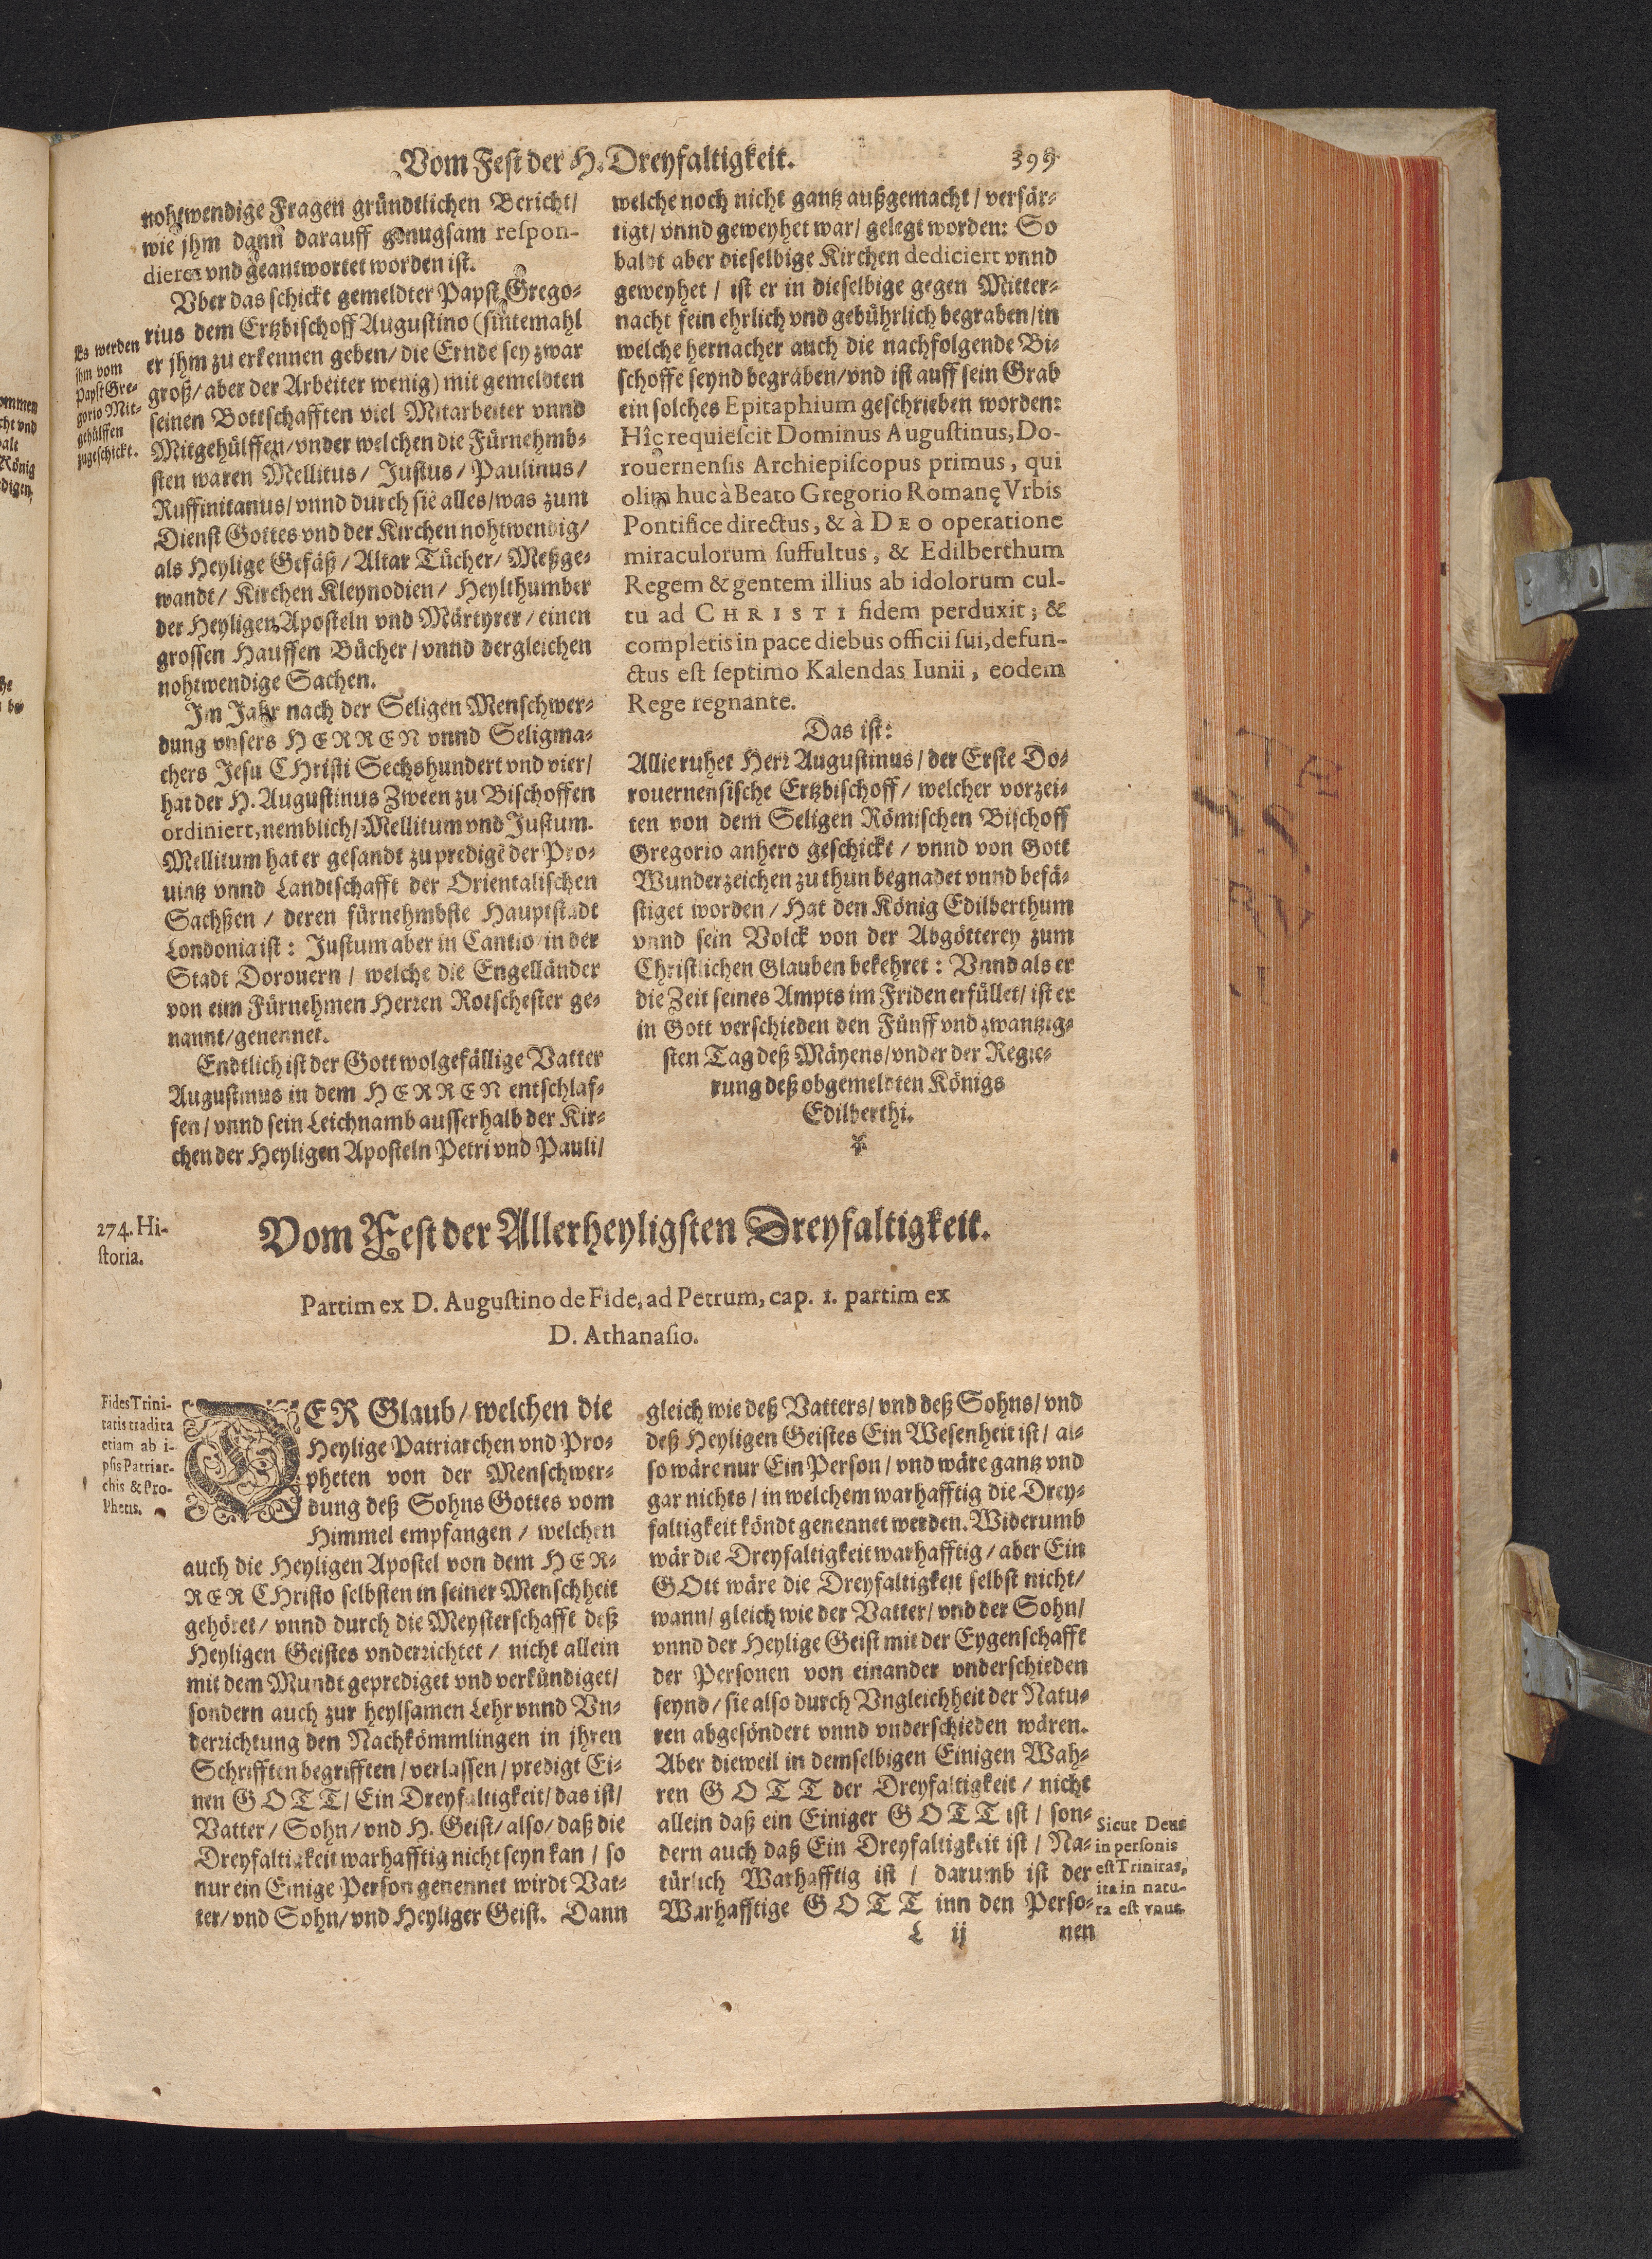 Vom Fest der H. Dreyfaltigkeit.
399
nohtwendige Fragen gründtlichen Bericht/
wie jhm dann darauff genugsam respon-
dieret vnd geantwortet worden ist.
Vber das schickt gemeldter Papst Grego-
rius dem Ertzbischoff Augustino (sintemahl
er jhm zu erkennen geben/ die Ernde sey zwar
groß/ aber der Arbeiter wenig) mit gemeldten
seinen Bottschafften viel Mitarbeiter vnnd
Mitgehülffen/ vnder welchen die Fürnehmb-
sten waren Mellitus/ Justus/ Paulinus/
Ruffinitanus/ vnnd durch sie alles/ was zum
Dienst Gottes vnd der Kirchen nohtwendig/
als Heylige Gefäß/ Altar Tücher/ Meßge-
wandt/ Kirchen Kleynodien/ Heylthumber
der Heyligen Aposteln vnd Märtyrer/ einen
grossen Hauffen Bücher/ vnnd dergleichen
nohtwendige Sachen.
Im Jahr nach der Seligen Menschwer-
dung vnsers HERREN vnnd Seligma-
chers Jesu CHristi Sechshundert vnd vier/
hat der H. Augustinus Zween zu Bischoffen
ordiniert, nemblich/ Mellitum vnd Justum.
Mellitum hat er gesandt zu predigē der Pro-
uintz vnnd Landtschafft der Orientalischen
Sachßen/ deren fürnehmbste Hauptstadt
Londonia ist: Justum aber in Cantio/ in der
Stadt Dorouern/ welche die Engelländer
von eim Fürnehmen Herren Rotschester ge-
nannt/ genennet.
Endtlich ist der Gott wolgefällige Vatter
Augustinus in dem HERREN entschlaf-
fen/ vnnd sein Leichnamb ausserhalb der Kir-
chen der Heyligen Aposteln Petri vnd Pauli/
Es werden
jhm vom
Papst Gre-
gorio Mit-
gehülffen
zugeschickt.
welche noch nicht gantz außgemacht/ verfär-
tigt/ vnnd geweyhet war/ gelegt worden: So
baldt aber dieselbige Kirchen dediciert vnnd
geweyhet/ ist er in dieselbige gegen Mitter-
nacht fein ehrlich vnd gebührlich begraben/ in
welche hernacher auch die nachfolgende Bi-
schoffe seynd begraben/ vnd ist auff sein Grab
ein solches Epitaphium geschrieben worden:
Hîc requiescit Dominus Augustinus, Do-
rouernensis Archiepiscopus primus, qui
olim huc à Beato Gregorio Romanę Vrbis
Pontifice directus, & à DEO operatione
miraculorum suffultus, & Edilberthum
Regem & gentem illius ab idolorum cul-
tu ad CHRISTI fidem perduxit; &
completis in pace diebus officii sui, defun-
ctus est septimo Kalendas Iunii, eodem
Rege regnante.
Das ist:
Allie ruhet Herr Augustinus/ der Erste Do-
rouernensische Ertzbischoff/ welcher vorzei-
ten von dem Seligen Römischen Bischoff
Gregorio anhero geschickt/ vnnd von Gott
Wunderzeichen zu thun begnadet vnnd befä-
stiget worden/ Hat den König Edilberthum
vnnd sein Volck von der Abgötterey zum
Christlichen Glauben bekehret: Vnnd als er
die Zeit seines Ampts im Friden erfüllet/ ist er
in Gott verschieden den Fünff vnd zwantzig-
sten Tag deß Mäyens/ vnder der Regie-
rung deß obgemeldten Königs
Edilberthi.
274. Hi-
storia.
Vom Fest der Allerheyligsten Dreyfaltigkeit.
Partim ex D. Augustino de Fide, ad Petrum, cap. 1. partim ex
D. Athanasio.
Fides Trini-
tatis tradita
etiam ab i-
psis Patriar-
chis & Pro-
phetis.
DER Glaub/ welchen die
Heylige Patriarchen vnd Pro-
pheten von der Menschwer-
dung deß Sohns Gottes vom
Himmel empfangen/ welchen
auch die Heyligen Apostel von dem HER-
RER CHristo selbsten in seiner Menschheit
gehöret/ vnnd durch die Meysterschafft deß
Heyligen Geistes vnderrichtet/ nicht allein
mit dem Mundt geprediget vnd verkündiget/
sondern auch zur heylsamen Lehr vnnd Vn-
derrichtung den Nachkömmlingen in jhren
Schrifften begrifften/ verlassen/ predigt Ei-
nen GOTT/ Ein Dreyfaltigkeit/ das ist/
Vatter/ Sohn/ vnd H. Geist/ also/ daß die
Dreyfaltigkeit warhafftig nicht seyn kan/ so
nur ein Einige Person genennet wirdt Vat-
ter/ vnd Sohn/ vnd Heyliger Geist. Dann
gleich wie deß Vatters/ vnd deß Sohns/ vnd
deß Heyligen Geistes Ein Wesenheit ist/ al-
so wäre nur Ein Person/ vnd wäre gantz vnd
gar nichts/ in welchem warhafftig die Drey-
faltigkeit köndt genennet werden. Widerumb
wär die Dreyfaltigkeit warhafftig/ aber Ein
GOtt wäre die Dreyfaltigkeit selbst nicht/
wann/ gleich wie der Vatter/ vnd der Sohn/
vnnd der Heylige Geist mit der Eygenschafft
der Personen von einander vnderschieden
seynd/ sie also durch Vngleichheit der Natu-
ren abgesöndert vnnd vnderschieden wären.
Aber dieweil in demselbigen Einigen Wah-
ren GOTT der Dreyfaltigkeit/ nicht
allein daß ein Einiger GOTT ist/ son-
dern auch daß Ein Dreyfaltigkeit ist/ Na-
türlich Warhafftig ist/ darumb ist der
Warhafftige GOTT inn den Perso-
Sicut Deus
in personis
est Trinitas,
ita in natu-
ra est vnus.
L ij
nen